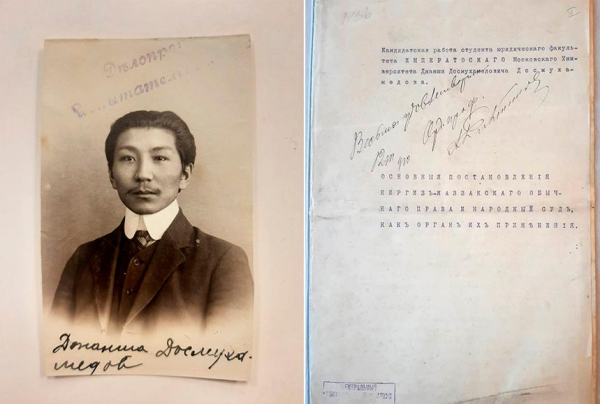 Дѣлопро
Джанша Досмуха-
медов
I
Кандидатская работа студента юридическаго факуль-
тета ИМПЕРАТОСКАГО Московскаго Уни-
верситета Джанши Досмухамедовича Досмуха-
медова.
Весьма
Орд. проф.
ОСНОВНЫЯ ПОСТАНОВЛЕНІЯ
КИРГИЗЪ-КАЗАКСКАГО ОБЫЧ-
НАГО ПРАВА И НАРОДНЫЙ СУДЪ,
КАКЪ ОРГАНЪ ИХЪ ПРИМѢНЕНІЯ.